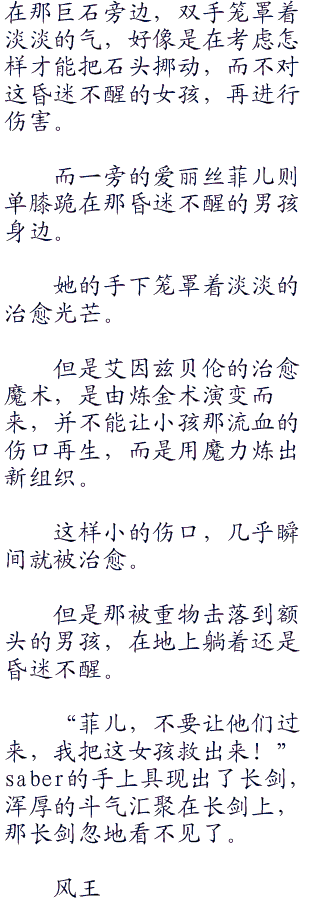 在那巨石旁边，双手笼罩着
淡淡的气，好像是在考虑怎
样才能把石头挪动，而不对
这昏迷不醒的女孩，再进行
伤害。
而一旁的爱丽丝菲儿则
单膝跪在那昏迷不醒的男孩
身边。
她的手下笼罩着淡淡的
治愈光芒。
但是艾因兹贝伦的治愈
魔术，是由炼金术演变而
来，并不能让小孩那流血的
伤口再生，而是用魔力炼出
新组织。
这样小的伤口，几乎瞬
间就被治愈。
但是那被重物击落到额
头的男孩，在地上躺着还是
昏迷不醒。
“菲儿，不要让他们过
来，我把这女孩救出来！”
saber的手上具现出了长剑，
浑厚的斗气汇聚在长剑上，
那长剑忽地看不见了。
风王